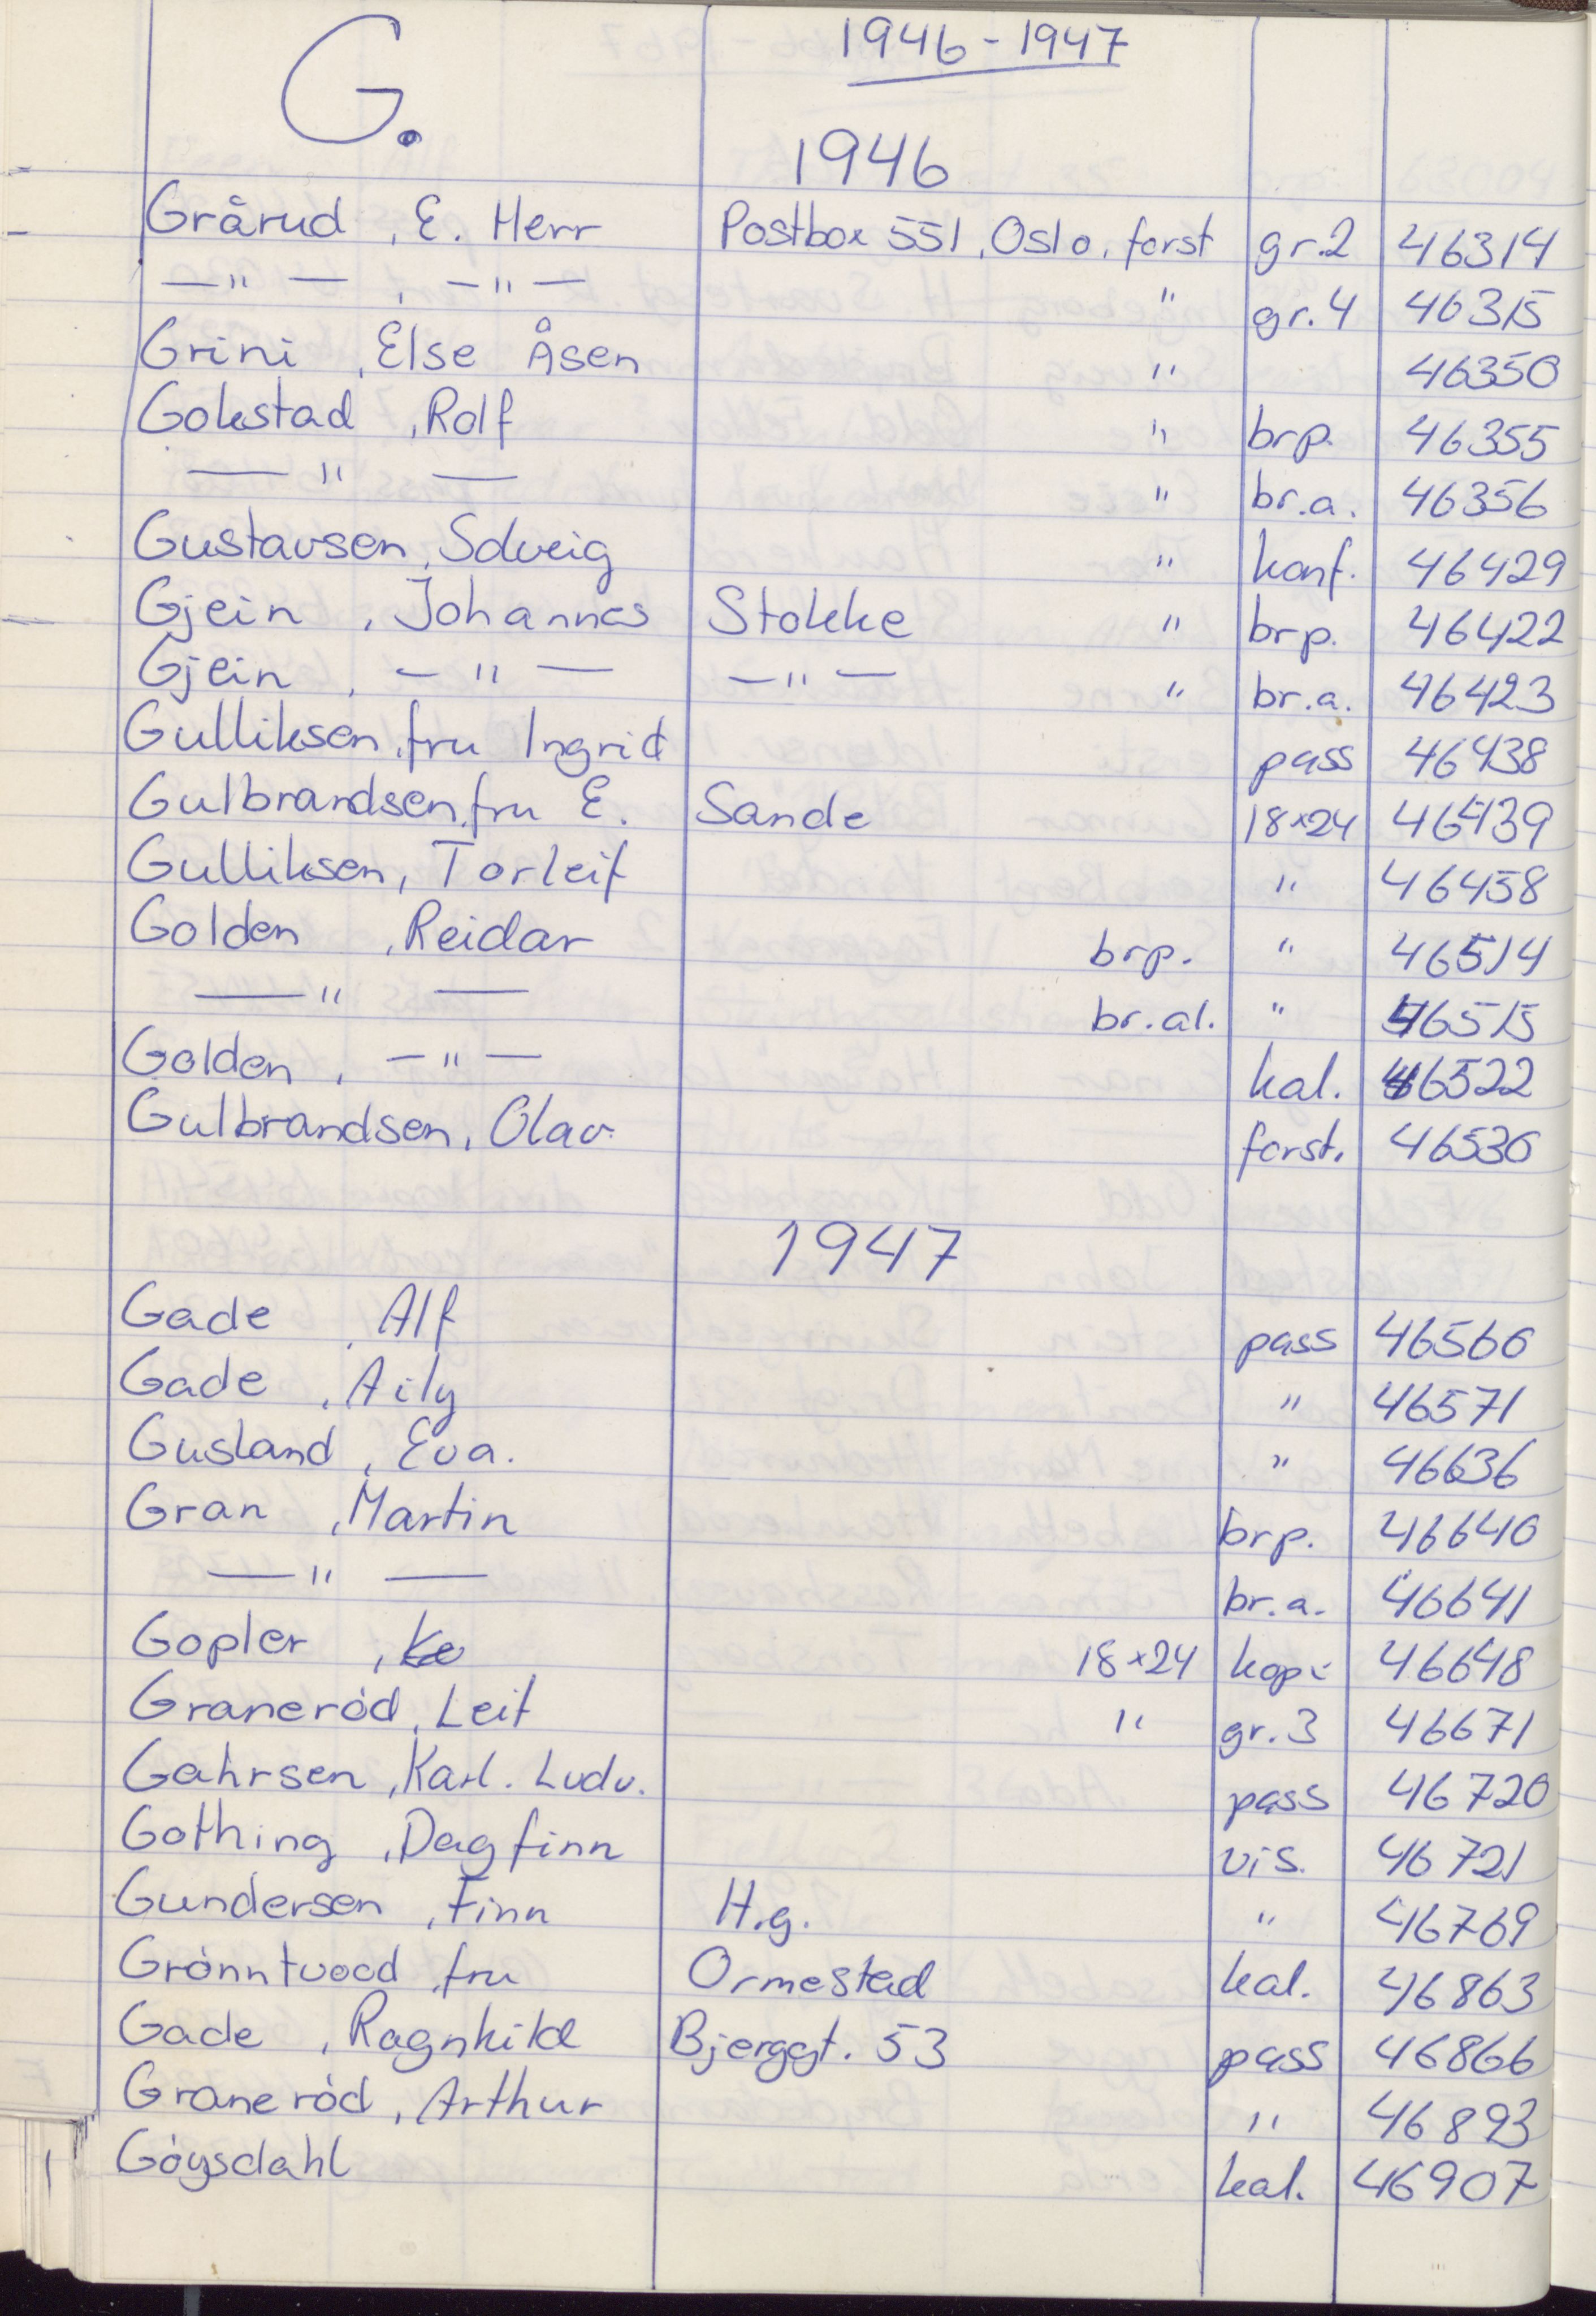 G.
1946 - 1947
1946
Grårud , E. Herr Postbox 551, Oslo, forst gr.2 46314
— " — , — " — " gr.4 46315
Grini , Else Åsen " 46350
Gokstad , Rolf " brp. 46355
— " — " br.a. 46356
Gustavsen, Solveig " konf. 46429
Gjein , Johannes Stokke " brp. 46422
Gjein , — " — — " — " br.a. 46423
Gulliksen, fru Ingrid pass 46438
Gulbrandsen, fru E. Sande 18x24 46439
Gulliksen, Torleif " 46458
Golden , Reidar brp. " 46514
— " — br.al. " 46515
Golden , — " — kal. 46522
Gulbrandsen, Olav. forst. 46530
1947
Gade , Alf pass 46560
Gade , Aily " 46571
Gusland , Eva. " 46636
Gran , Martin brp. 46640
— " — br.a. 46641
Gopler , 18x24 kopi 46648
Graneröd, Leif " gr.3 46671
Gahrsen, Karl. Ludv. pass 46720
Gothing , Dagfinn vis. 46721
Gundersen , Finn H.g. " 46769
Grönntvood, fru Ormestad kal. 46863
Gade , Ragnhild Bjerggt. 53 pass 46866
Graneröd, Arthur " 46893
Göysdahl kal. 46907